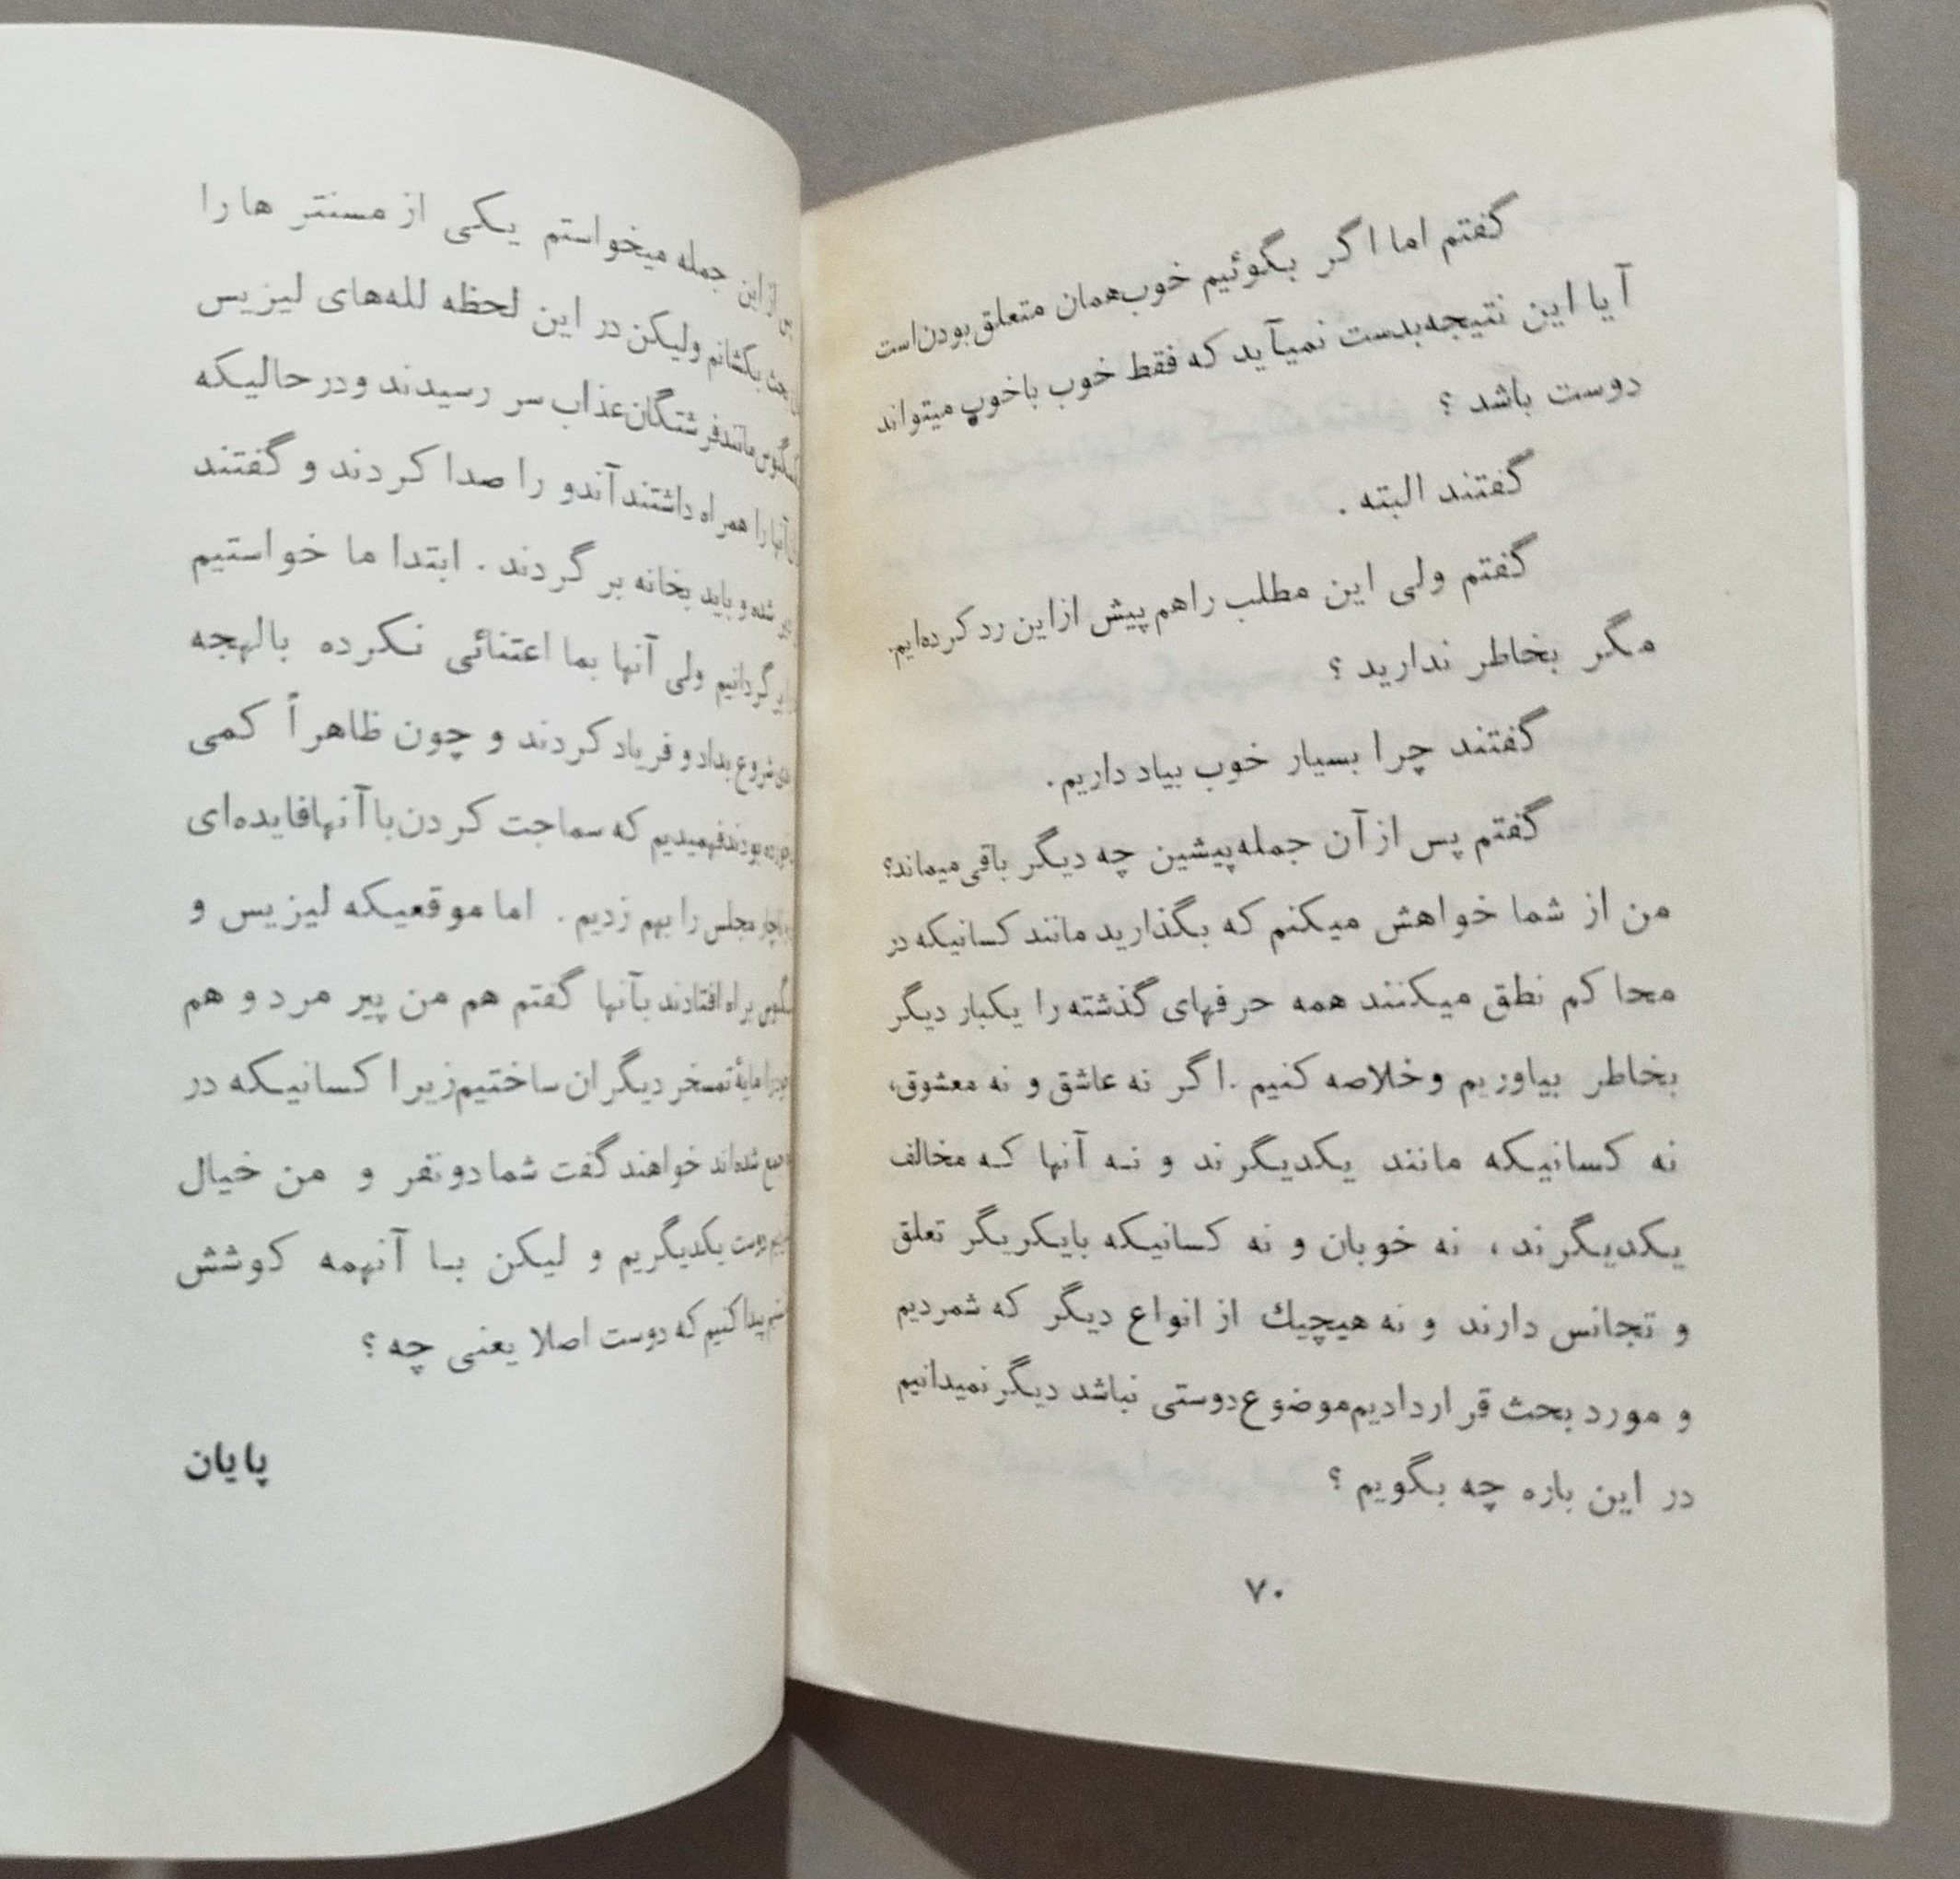 گفتم اما اگر بگوئیم خوب همان متعلق بودن است
آیا این نتیجه بدست نمیآید که فقط خوب با خوب میتواند
دوست باشد ؟
گفتند البته .
گفتم ولی این مطلب را هم پیش از این رد کرده‌ایم.
مگر بخاطر ندارید ؟
گفتند چرا بسیار خوب بیاد داریم.
گفتم پس از آن جمله پیشین چه دیگر باقی میماند؟
من از شما خواهش میکنم که بگذارید مانند کسانیکه در
محاکم نطق میکنند همه حرفهای گذشته را یکبار دیگر
بخاطر بیاوریم و خلاصه کنیم . اگر نه عاشق و نه معشوق،
نه کسانیکه مانند یکدیگرند و نه آنها که مخالف
یکدیگرند ، نه خوبان و نه کسانیکه بایکریگر تعلق
و تجانس دارند و نه هیچیك از انواع دیگر که شمردیم
و مورد بحث قرار دادیم موضوع دوستی نباشد دیگر نمیدانیم
در این باره چه بگویم ؟
۷۰
از این جمله میخواستم یکی از مسنتر ها را
بحث بکشانم ولیکن در این لحظه لله‌های لیزیس
مانند فرشتگان عذاب سر رسیدند و در حالیکه
آنها را همراه داشتند آندو را صدا کردند و گفتند
شده و باید بخانه بر گردند . ابتدا ما خواستیم
گردانیم ولی آنها بما اعتنائی نکرده بالهجه
شروع بداد و فریاد کردند و چون ظاهراً کمی
بودند فهمیدیم که سماجت کردن با آنها فایده‌ای
مجلس را بهم زدیم . اما موقعیکه لیزیس و
براه افتادند بآنها گفتم هم من پیر مرد و هم
را مایهٔ تمسخر دیگران ساختیم زیرا کسانیکه در
جمع شده‌اند خواهند گفت شما دو نفر و من خیال
دوست یکدیگریم و لیکن با آنهمه کوشش
پیدا کنیم که دوست اصلا یعنی چه ؟
پایان